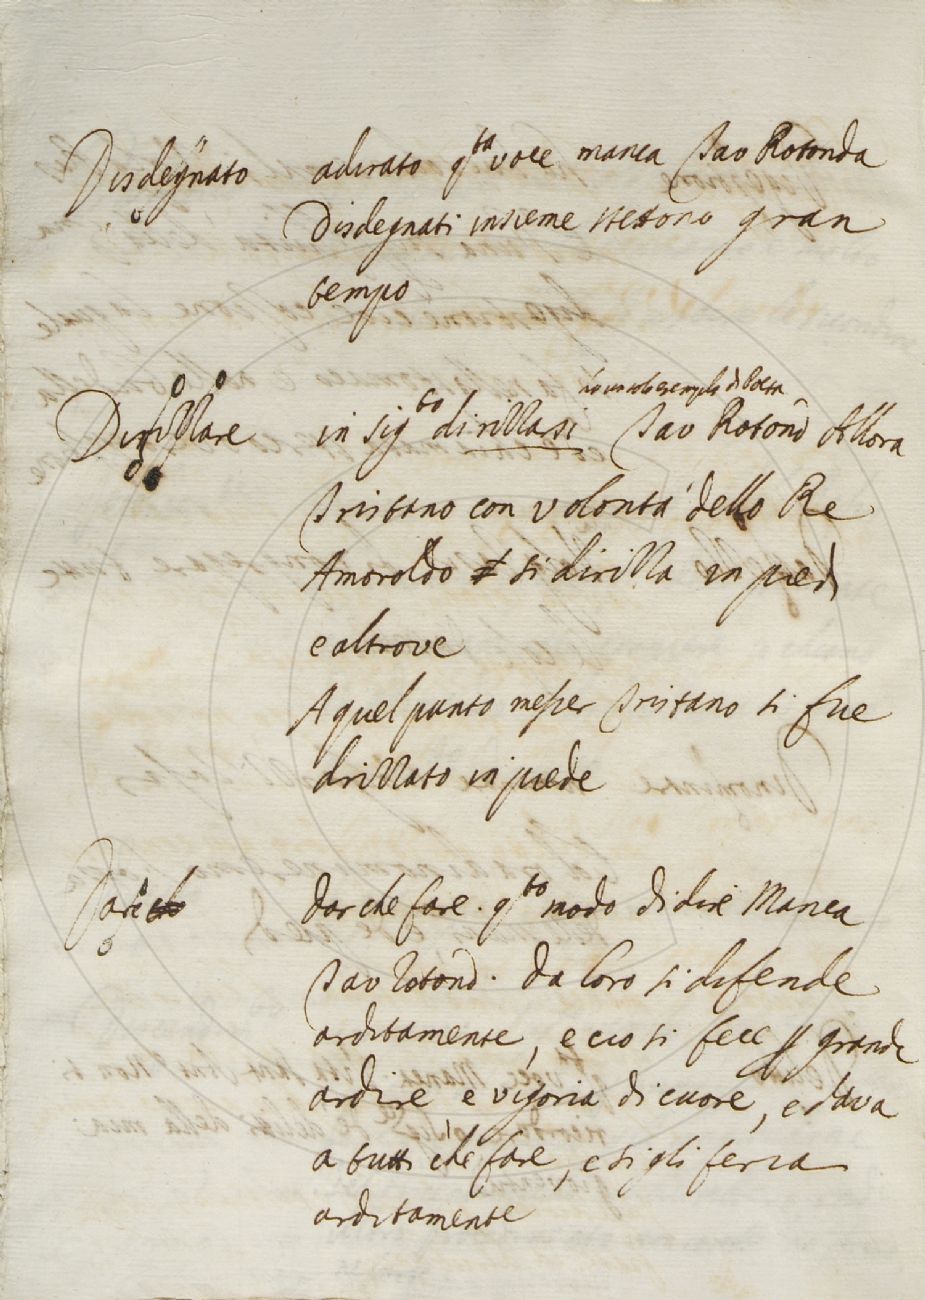 Disdegnato adirato q.ta voce manca Tav Rotonda
Disdegnati insieme stettono gran
tempo
Dirizzare in sig.to dirizzarsi v'è un solo esempio di Poeta Tav Rotond Allora
Tristano con volontà dello Re
Amoroldo si dirizza in piedi
e altrove
A quel punto messer Tristano si fue
drizzato in piede
Dare dar che fare. q.to modo di dire Manca
Tav Rotond. da loro si difende
arditamente, e ciò si fece p grande
ardire e vigoria di cuore, e dava
a tutti che fare, e sì gli feria
arditamente